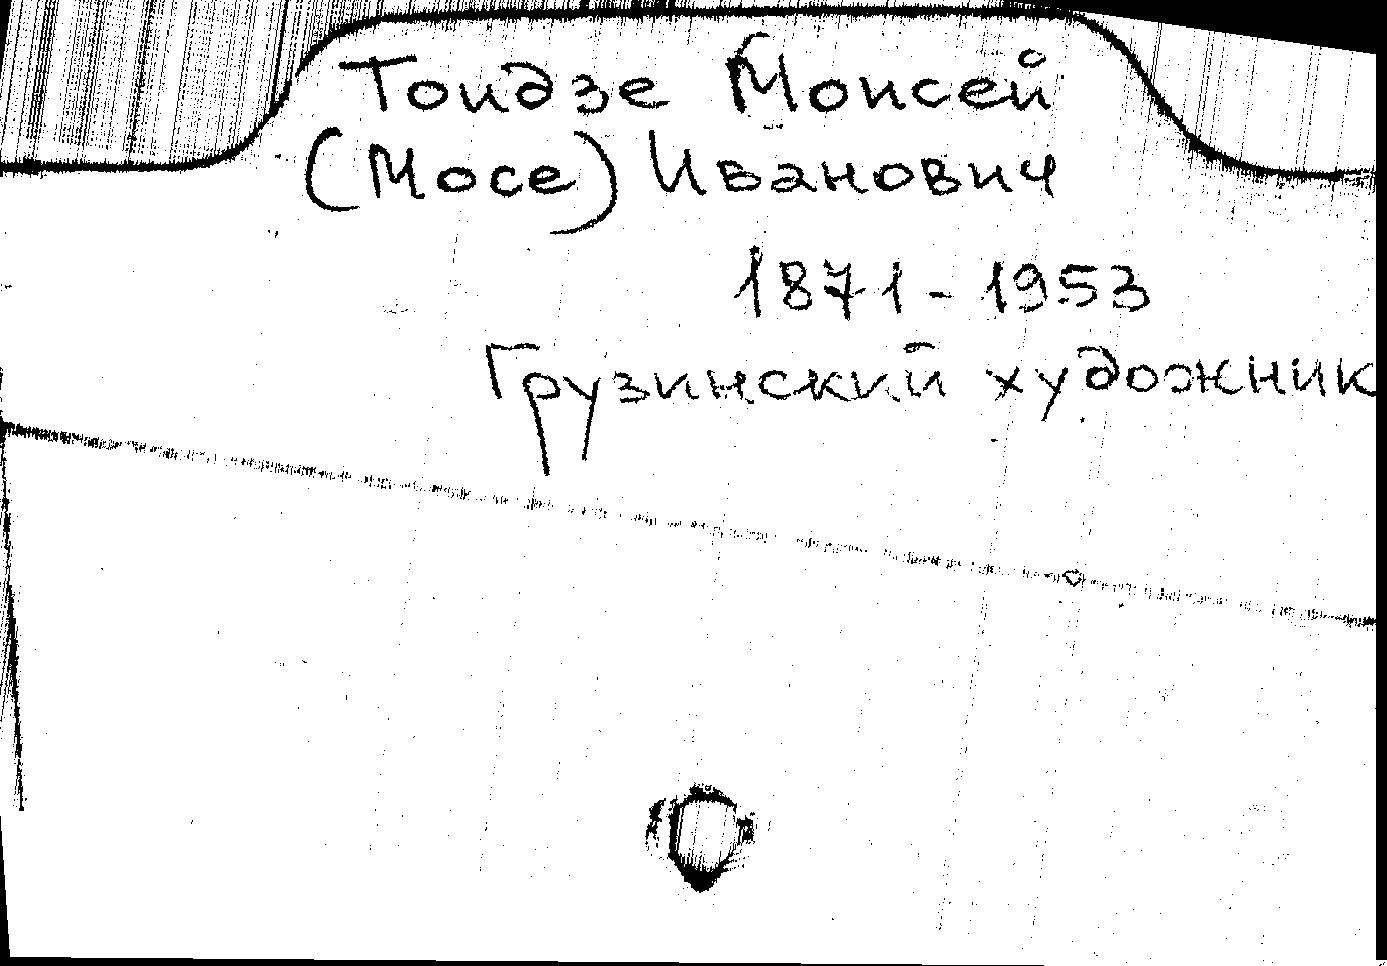 Тоидзе Моисей
(Мосе) Иванович
1871-1953
Грузинский художник